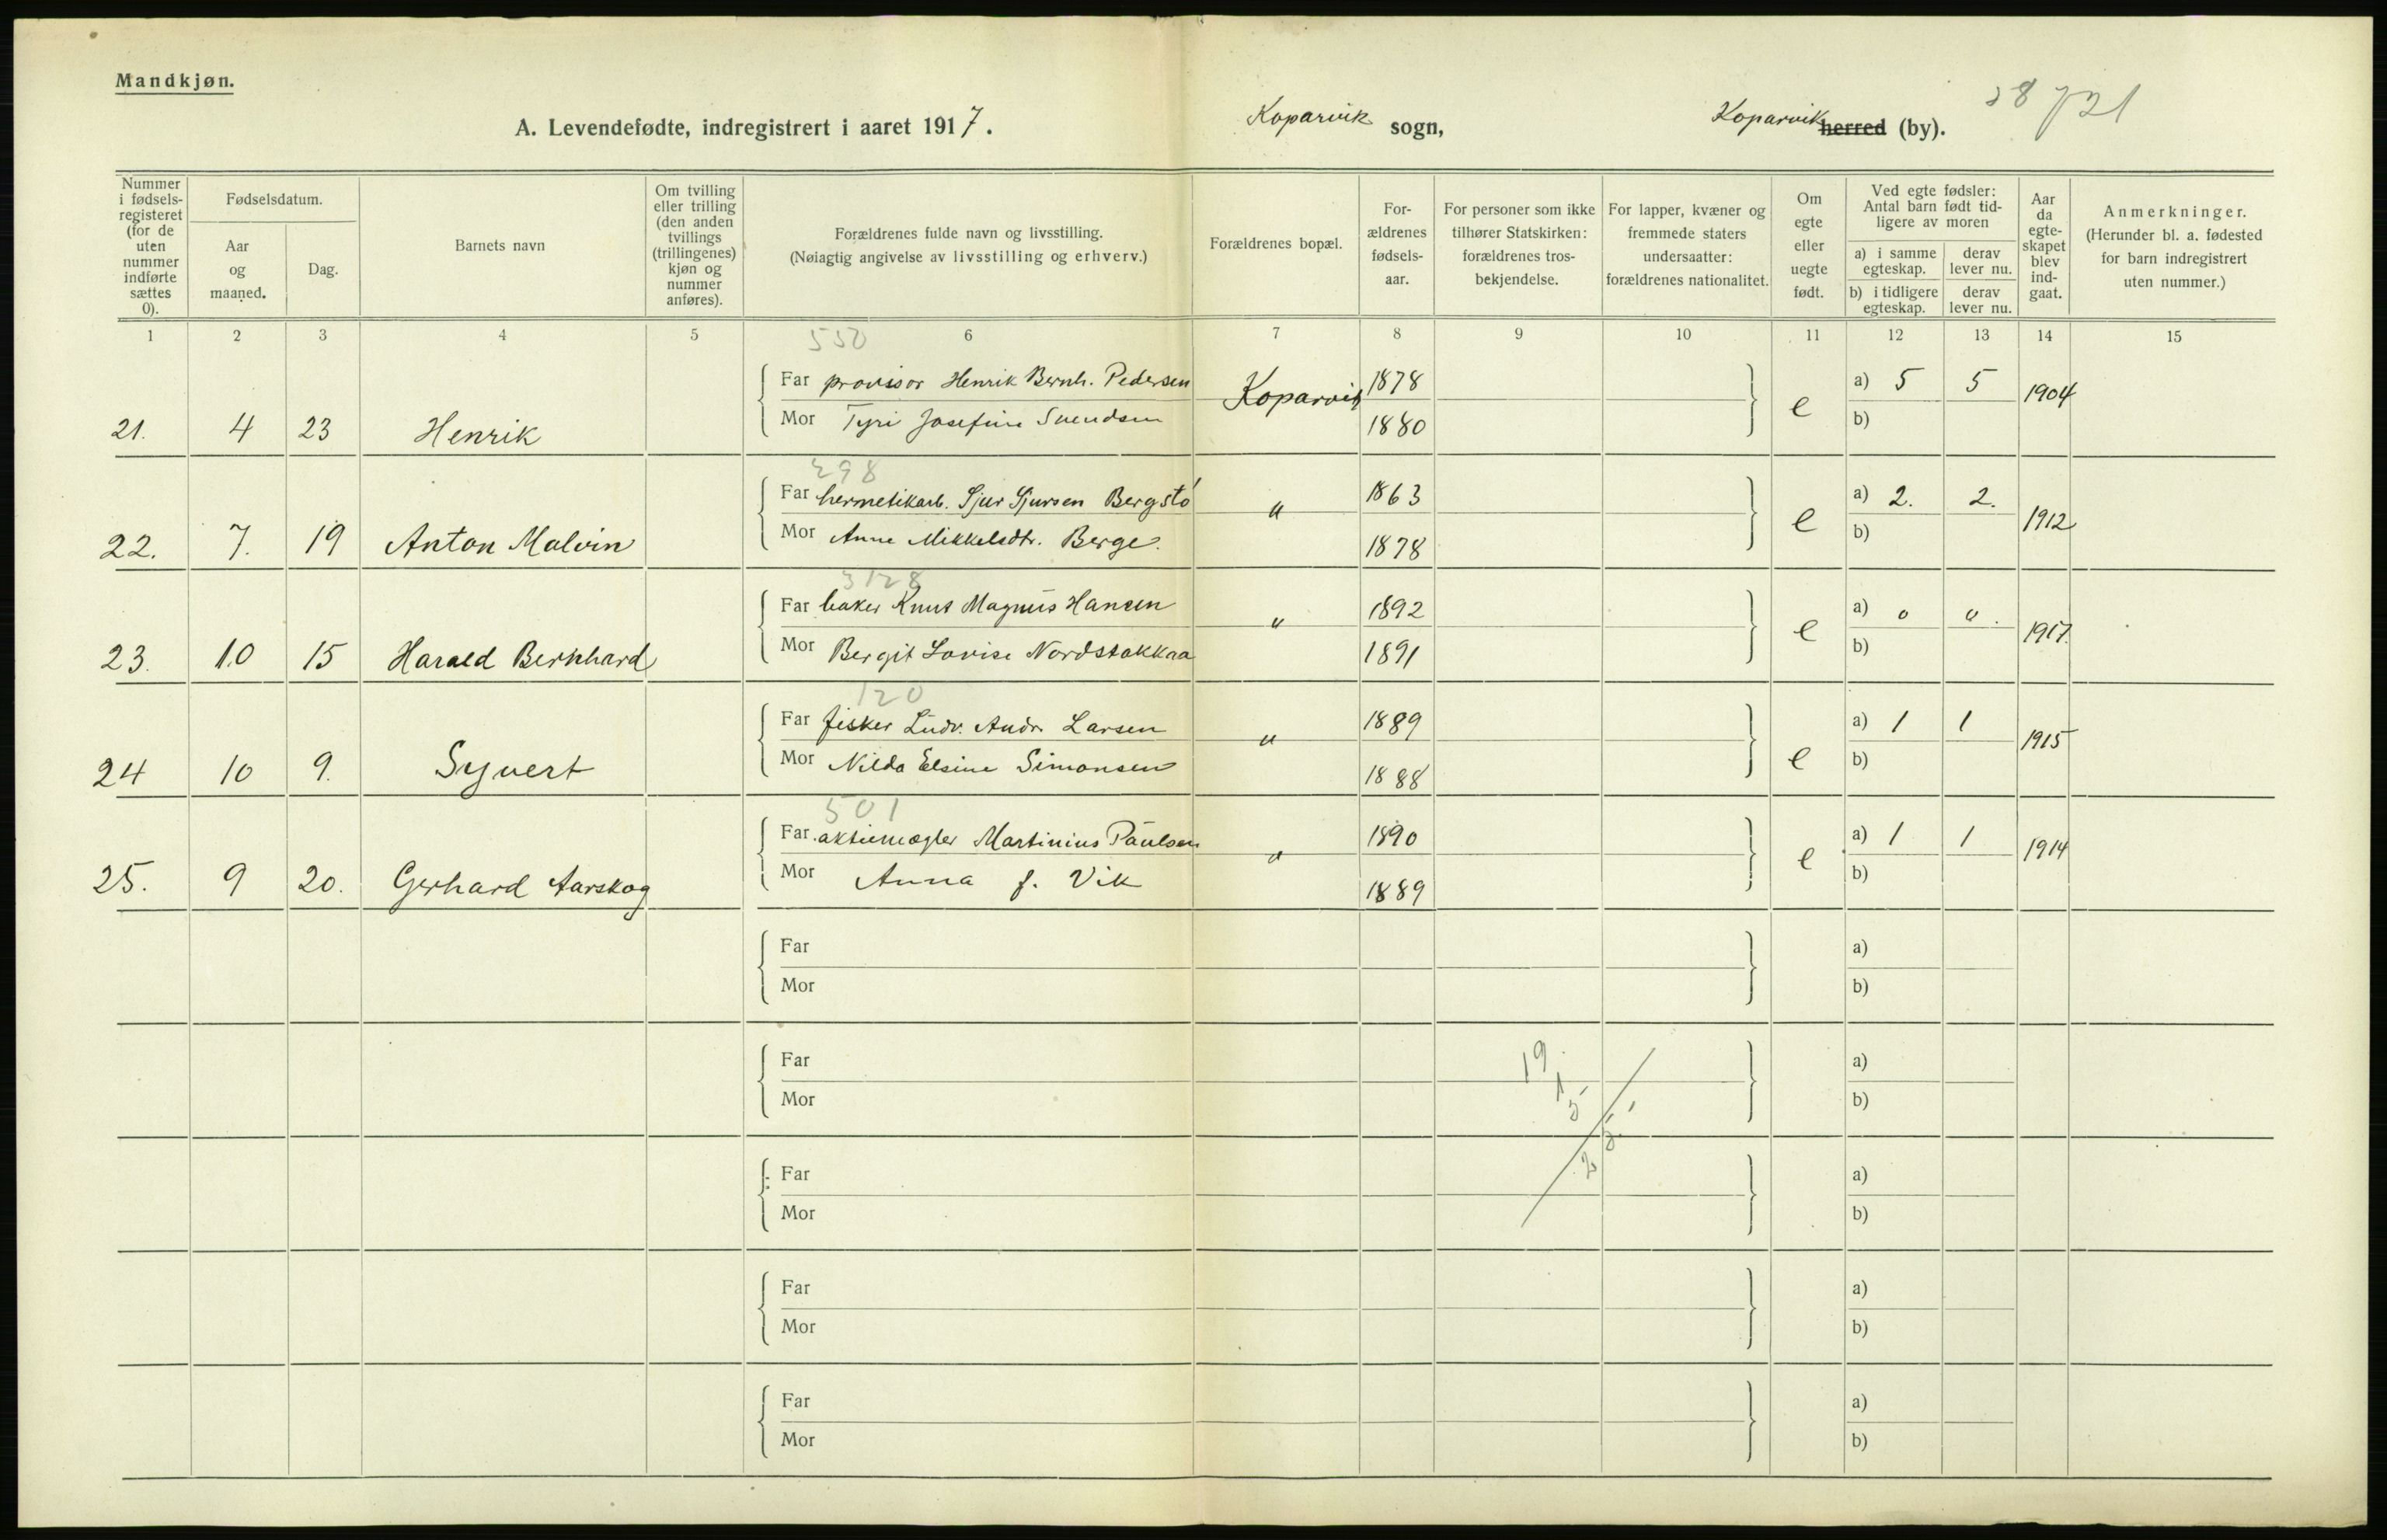 Mandkjøn.
A. Levendefødte, indregistrert i aaret 1917. Koparvik sogn, Koparvik herred (by). 28 721
Nummer i fødsels-registeret (for de uten nummer indførte sættes 0).
Fødselsdatum.
Aar og maaned.
Dag.
Barnets navn
Om tvilling eller trilling (den anden tvillings (trillingenes) kjøn og nummer anføres).
Forældrenes fulde navn og livsstilling. (Nøiagtig angivelse av livsstilling og erhverv.)
Forældrenes bopæl.
For-ældrenes fødsels-aar.
For personer som ikke tilhører Statskirken: forældrenes tros-bekjendelse.
For lapper, kvæner og fremmede staters undersaatter: forældrenes nationalitet.
Om egte eller uegte født.
Ved egte fødsler: Antal barn født tid-ligere av moren
a) i samme egteskap. derav lever nu.
b) i tidligere egteskap. derav lever nu.
Aar da egte-skapet blev ind-gaat.
Anmerkninger. (Herunder bl. a. fødested for barn indregistrert uten nummer.)
1 2 3 4 5 6 7 8 9 10 11 12 13 14 15
550
Far provisor Henrik Bernh. Pedersen Koparvik 1878 a) 5 5 1904
21. 4 23 Henrik Mor Tyri Josefine Svendsen 1880 e b)
298
Far hermetikarb. Sjur Sjursen Bergstø " 1863 a) 2. 2. 1912
22. 7. 19 Anton Malvin Mor Anne Mikkelsdtr. Berge. 1878 e b)
3128
Far baker Knut Magnus Hansen " 1892 a) 0 0. 1917.
23. 10 15 Harald Bernhard Mor Bergit Lovise Nordstokkaa 1891 e b)
120
Far fisker Ludv. Andr. Larsen " 1889 a) 1 1 1915
24 10 9. Syvert Mor Nilda Elsine Simonsen 1888 e b)
501
Far aktiemægler Martinius Paulsen " 1890 a) 1 1 1914
25. 9 20. Gerhard Aarskog Mor Anna f. Vik 1889 e b)
Far a)
Mor b)
Far 19 a)
Mor 1 5 b)
25
Far a)
Mor b)
Far a)
Mor b)
Far a)
Mor b)